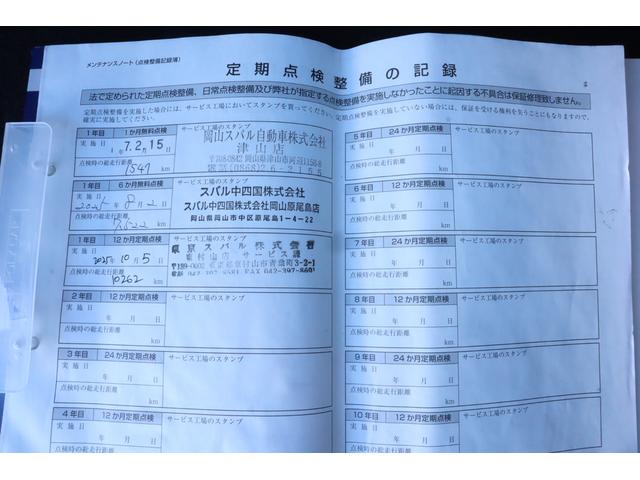 メンテナンスノート(点検整備記録簿)
定期点検整備の記録
法で定められた定期点検整備、日常点検整備及び弊社が指定する点検整備を実施しなかったことに起因する不具合は保証修理致しません。
定期点検整備を実施した場合には、サービス工場においてスタンプを買ってください。定期点検整備を実施していない場合には、保証を受ける権利を失うこともありますので、
確実に実施してください。
1年目 1か月無料点検 サービス工場のスタンプ
実施日 7.2.15
点検時の総走行距離
1547 km
岡山スバル自動車株式会社
津山店
1年目 6か月無料点検 サービス工場のスタンプ
実施日
2025年8月2日
点検時の総走行距離
7522 km
スバル中四国株式会社
スバル中四国株式会社岡山原尾島店
岡山県岡山市中区原尾島1-4-22
1年目 12か月定期点検 サービス工場のスタンプ
実施日
2025年10月5日
点検時の総走行距離
10262 km
東京スバル株式会社
東村山店 サービス課
2年目 12か月定期点検 サービス工場のスタンプ
実施日
年 月 日
点検時の総走行距離
km
3年目 24か月定期点検 サービス工場のスタンプ
実施日
年 月 日
点検時の総走行距離
km
4年目 12か月定期点検 サービス工場のスタンプ
実施日
年 月 日
点検時の総走行距離
km
5年目 24か月定期点検 サービス工場のスタンプ
実施日
年 月 日
点検時の総走行距離
km
6年目 12か月定期点検 サービス工場のスタンプ
実施日
年 月 日
点検時の総走行距離
km
7年目 24か月定期点検 サービス工場のスタンプ
実施日
年 月 日
点検時の総走行距離
km
8年目 12か月定期点検 サービス工場のスタンプ
実施日
年 月 日
点検時の総走行距離
km
9年目 24か月定期点検 サービス工場のスタンプ
実施日
年 月 日
点検時の総走行距離
km
10年目 12か月定期点検 サービス工場のスタンプ
実施日
年 月 日
点検時の総走行距離
km